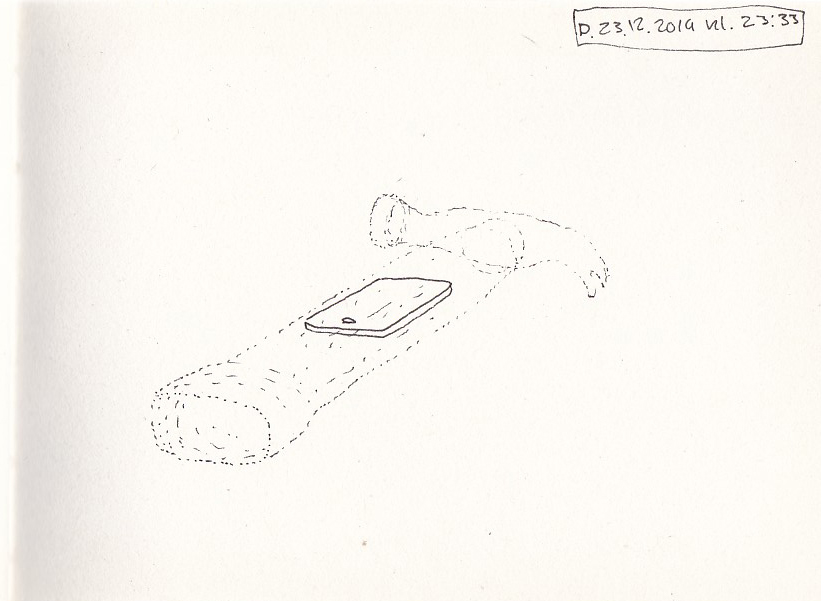 D. 23.12.2019 kl. 23:33